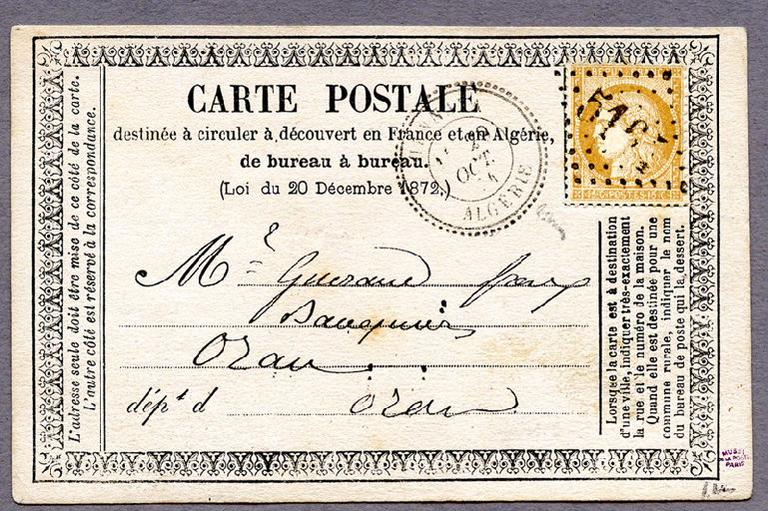 CARTE POSTALE
destinée à circuler à découvert en France et en Algérie,
de bureau à bureau.
(Loi du 20 Décembre 1872.)
L'adresse seule doit être mise de ce côté de la carte.
L'autre côté est réservé à la correspondance.
OCT.
ALGÉRIE
POSTES
Lorsque la carte est à destination
d'une ville, indiquer très-exactement
la rue et le numéro de la maison.
Quand elle est destinée pour une
commune rurale, indiquer le nom
du bureau de poste qui la dessert.
Mr
Banquier
Oran
dépt d Oran
MUSÉE
LA POSTE
PARIS